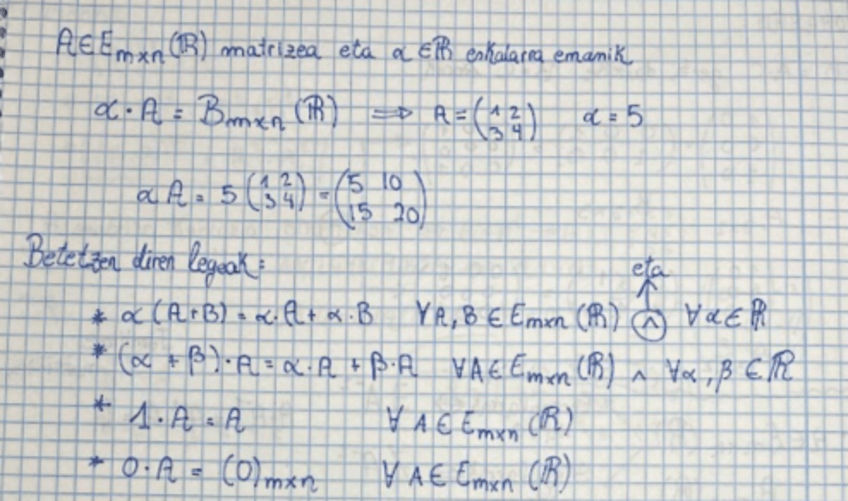 A ∈ E_{m×n}(ℝ) matrizea eta α ∈ ℝ eskalarra emanik
α · A = B_{m×n}(ℝ) ⟹ A = (1 2 / 3 4) α = 5
αA = 5 (1 2 / 3 4) = (5 10 / 15 20)
Betetzen diren legeak:
eta
* α(A+B) = α·A + α·B ∀A, B ∈ E_{m×n}(ℝ) ∧ ∀α ∈ ℝ
* (α + β)·A = α·A + β·A ∀A ∈ E_{m×n}(ℝ) ∧ ∀α, β ∈ ℝ
* 1·A = A ∀ A ∈ E_{m×n}(ℝ)
* 0·A = (0)_{m×n} ∀ A ∈ E_{m×n}(ℝ)